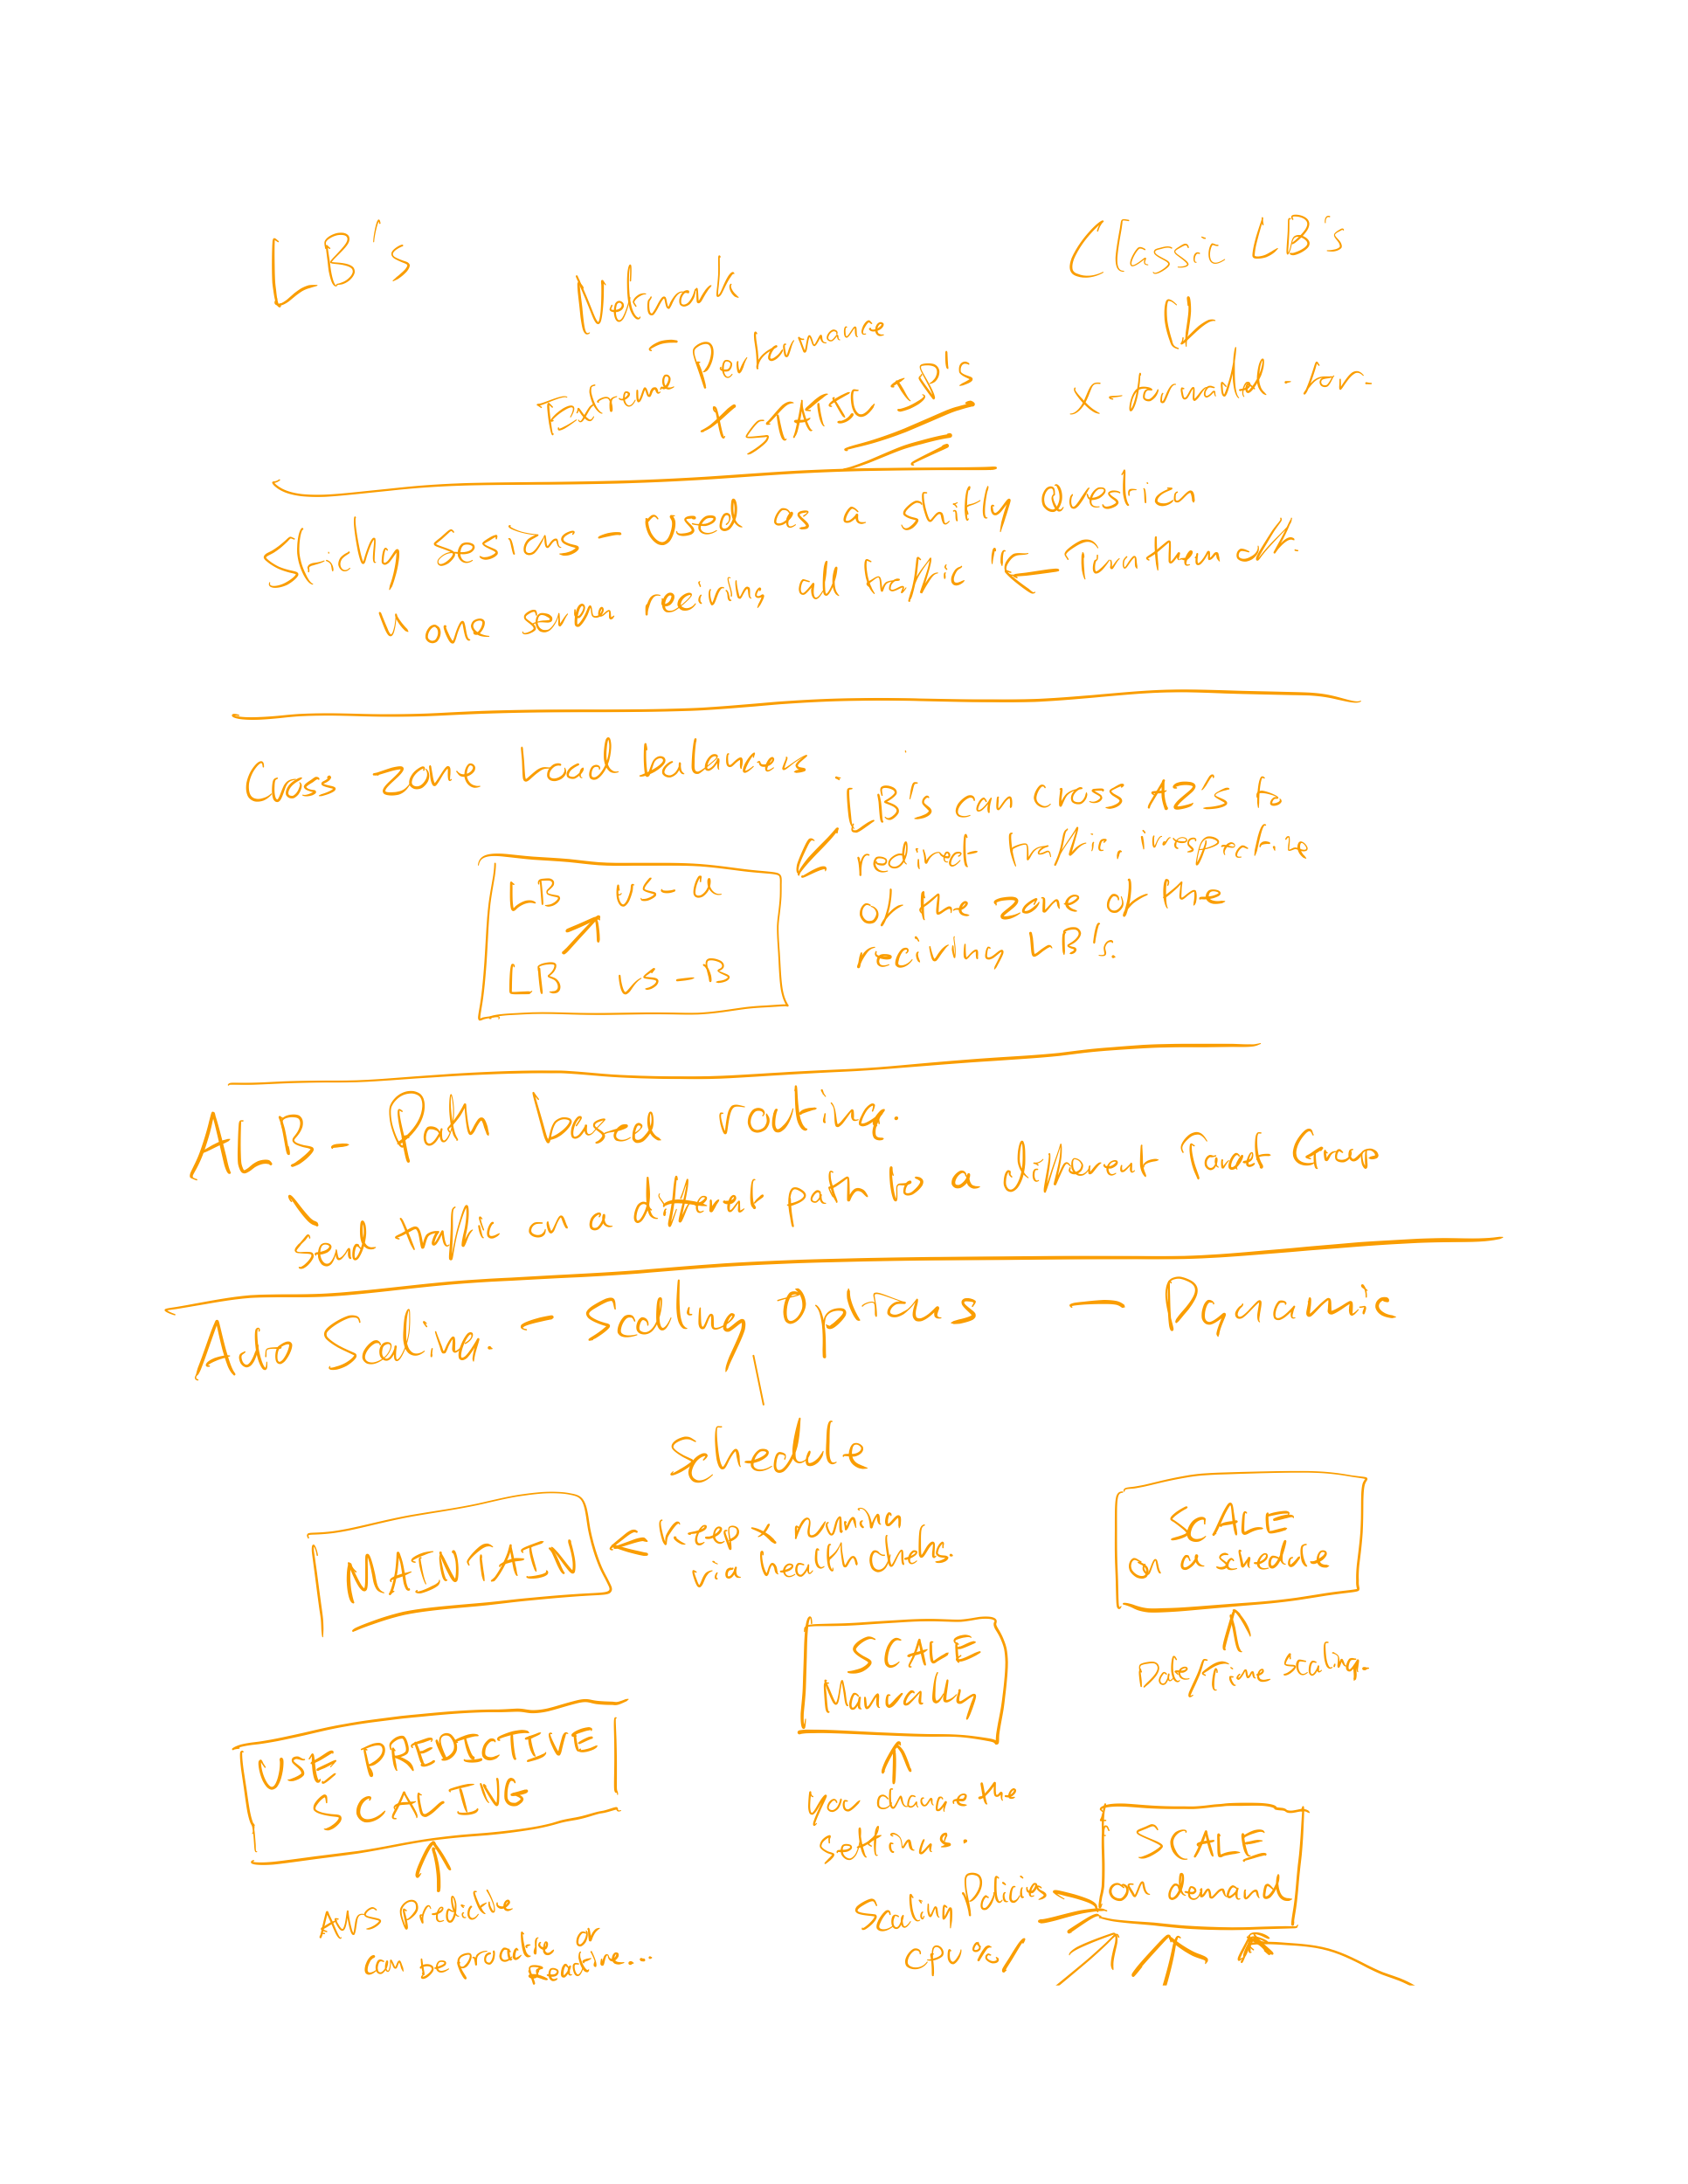 LB's
Network
- Extreme Performance
+ STATIC IP's
Classic LB's
x-forwarded-for.
Sticky sessions - Used as a shitty question
"one server reciving all traffic" ← Turn them off.
Cross zone load balancers.
LB's can cross AZ's to
redirect traffic, irrespective
of the zone of the
reciving LB's.
LB us-a
LB us-B
ALB - Path based routing.
Send traffic on a different path to a different Target Group
Auto Scaling. - Scaling Options - Dynamic
Schedule
MAINTAIN
Keep x running
via health checks.
SCALE
on a schedule
Date/Time scaling.
SCALE
Manually
You change the
settings.
USE PREDICTIVE
SCALING
AWS Predictive
can be proactive or
Reactive...
SCALE
on demand
Scaling Policies
CPU %